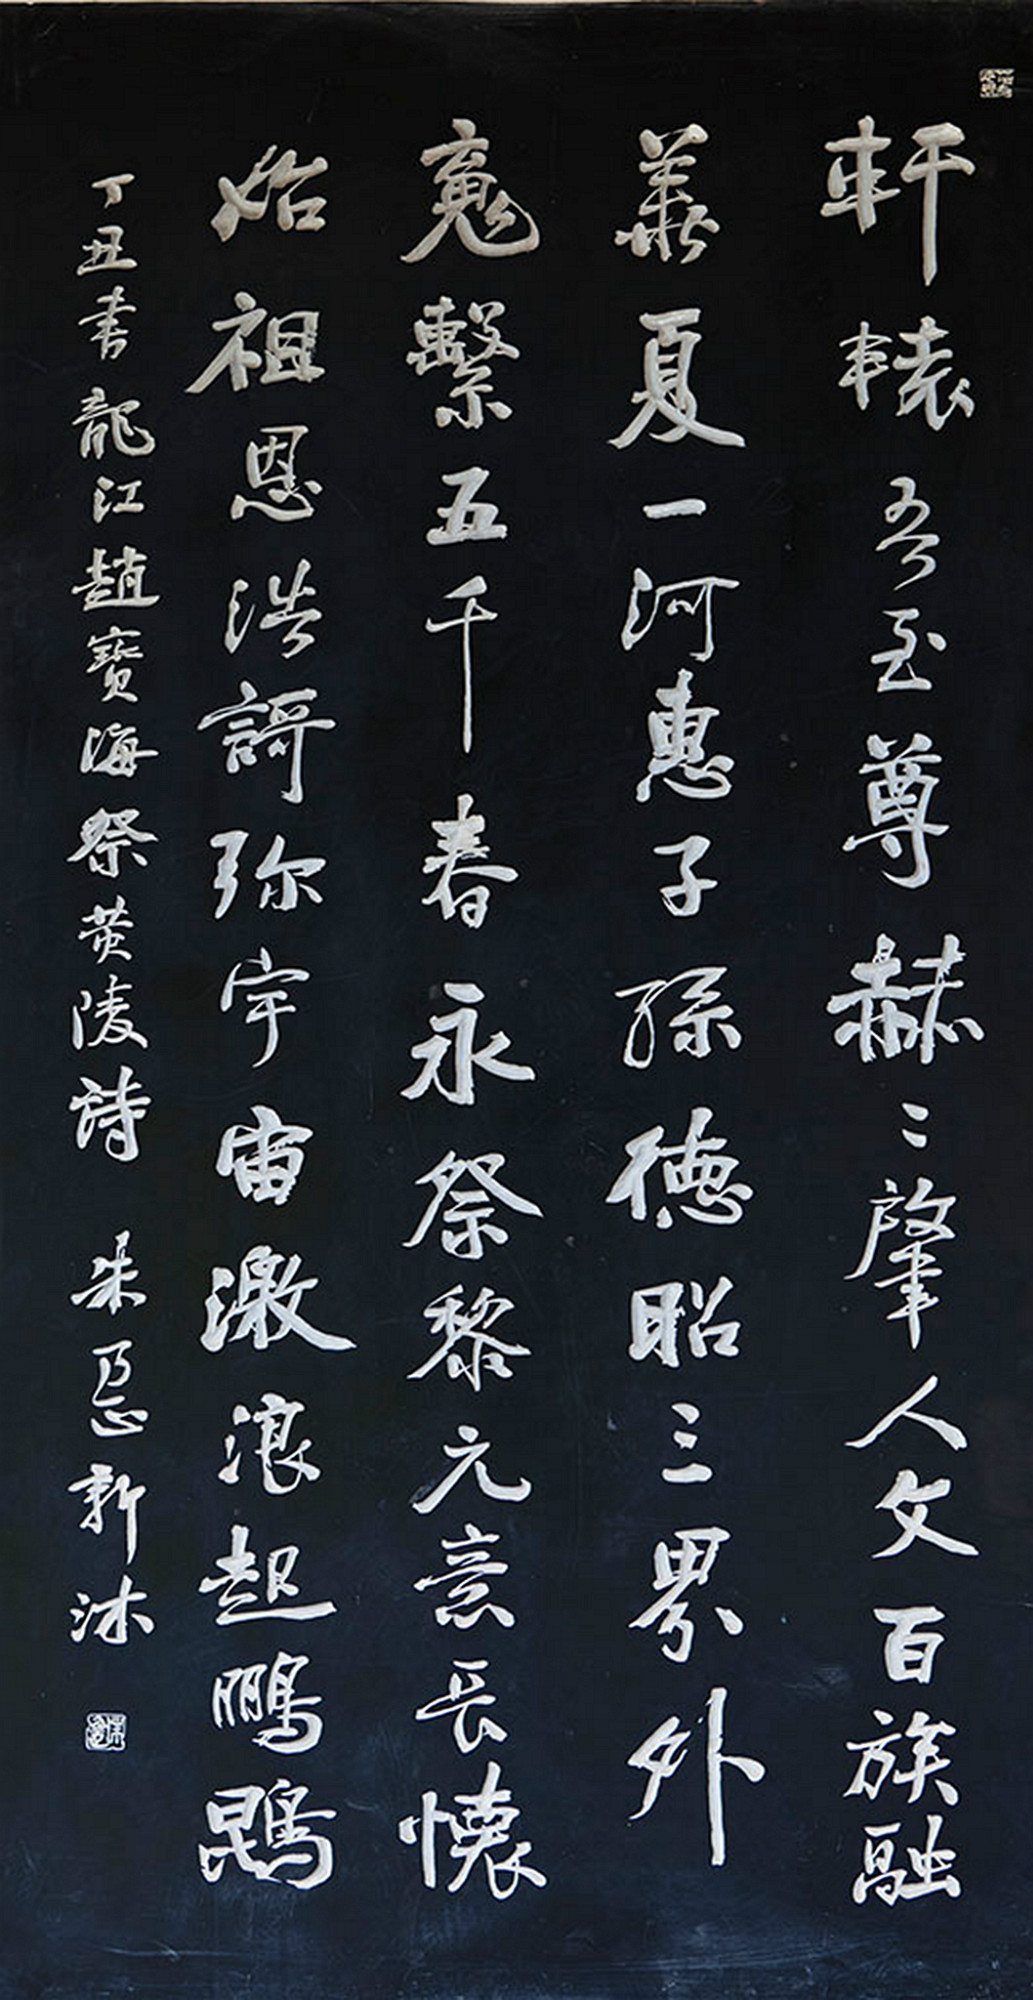 軒轅吾至尊赫〻肇人文百族融
華夏一河惠子孫德昭三界外
魂繫五千春永祭黎元意長懷
始祖恩浩謌弥宇宙激浪起鵬鵾
丁丑书龍江趙寶海祭黄陵詩 朱恶新沐